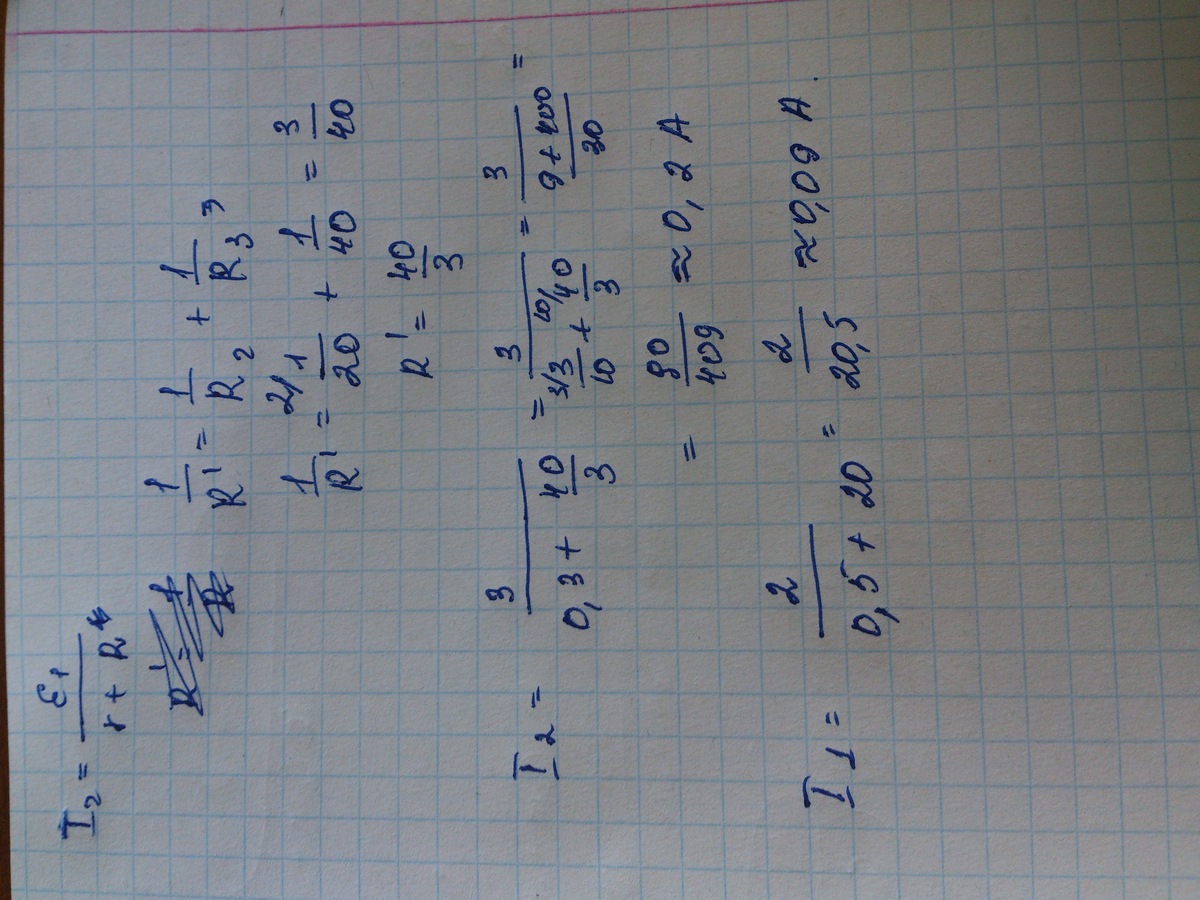 I₂ = ε₁/(r + R*)
1/R' = 1/R₂ + 1/R₃,
1/R' = ²⁄1/20 + 1/40 = 3/40
R' = 40/3
I₂ = 3/(0,3 + 40/3) = 3/(³⁄3/10 + ¹⁰⁄40/3) = 3/((9 + 400)/30) =
= 90/409 ≈ 0,2 A
I1 = 2/(0,5 + 20) = 2/20,5 ≈ 0,09 A.